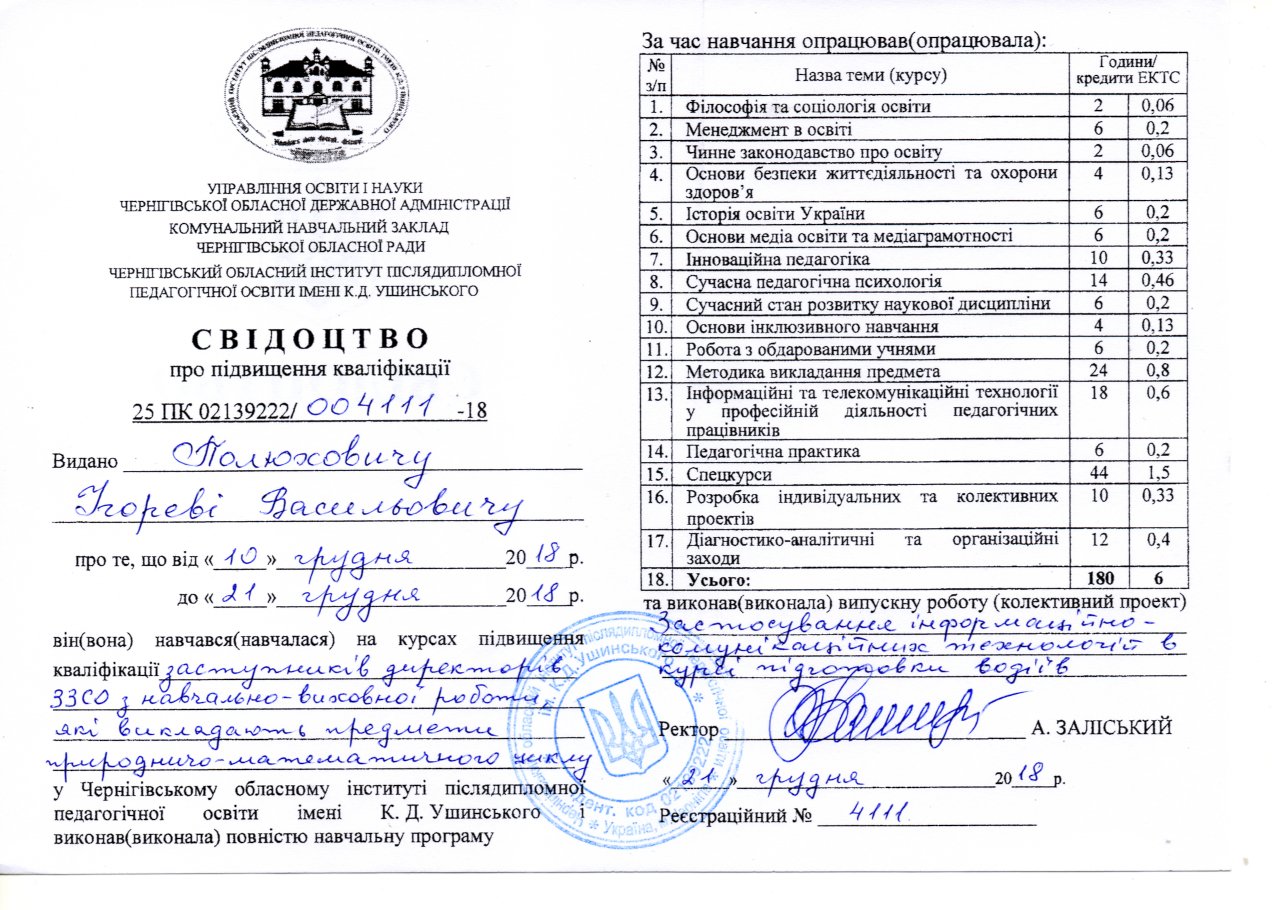 УПРАВЛІННЯ ОСВІТИ І НАУКИ
ЧЕРНІГІВСЬКОЇ ОБЛАСНОЇ ДЕРЖАВНОЇ АДМІНІСТРАЦІЇ
КОМУНАЛЬНИЙ НАВЧАЛЬНИЙ ЗАКЛАД
ЧЕРНІГІВСЬКОЇ ОБЛАСНОЇ РАДИ
ЧЕРНІГІВСЬКИЙ ОБЛАСНИЙ ІНСТИТУТ ПІСЛЯДИПЛОМНОЇ
ПЕДАГОГІЧНОЇ ОСВІТИ ІМЕНІ К.Д. УШИНСЬКОГО
СВІДОЦТВО
про підвищення кваліфікації
25 ПК 02139222/ 004111 -18
Видано Полюховичу
Ігореві Васильовичу
про те, що від « 10 » грудня 2018 р.
до « 21 » грудня 2018 р.
він(вона) навчався(навчалася) на курсах підвищення
кваліфікації заступників директорів
ЗЗСО з навчально-виховної роботи,
які викладають предмети
природничо-математичного циклу
у Чернігівському обласному інституті післядипломної
педагогічної освіти імені К. Д. Ушинського і
виконав(виконала) повністю навчальну програму
За час навчання опрацював(опрацювала):
№ з/п Назва теми (курсу) Години/ кредити ЕКТС
1. Філософія та соціологія освіти 2 0,06
2. Менеджмент в освіті 6 0,2
3. Чинне законодавство про освіту 2 0,06
4. Основи безпеки життєдіяльності та охорони 4 0,13
здоров’я
5. Історія освіти України 6 0,2
6. Основи медіа освіти та медіаграмотності 6 0,2
7. Інноваційна педагогіка 10 0,33
8. Сучасна педагогічна психологія 14 0,46
9. Сучасний стан розвитку наукової дисципліни 6 0,2
10. Основи інклюзивного навчання 4 0,13
11. Робота з обдарованими учнями 6 0,2
12. Методика викладання предмета 24 0,8
13. Інформаційні та телекомунікаційні технології 18 0,6
у професійній діяльності педагогічних
працівників
14. Педагогічна практика 6 0,2
15. Спецкурси 44 1,5
16. Розробка індивідуальних та колективних 10 0,33
проектів
17. Діагностико-аналітичні та організаційні 12 0,4
заходи
18. Усього: 180 6
та виконав(виконала) випускну роботу (колективний проект)
Застосування інформаційно-
комунікаційних технологій в
курсі підготовки водіїв
Ректор А. ЗАЛІСЬКИЙ
« 21 » грудня 2018 р.
Реєстраційний № 4111